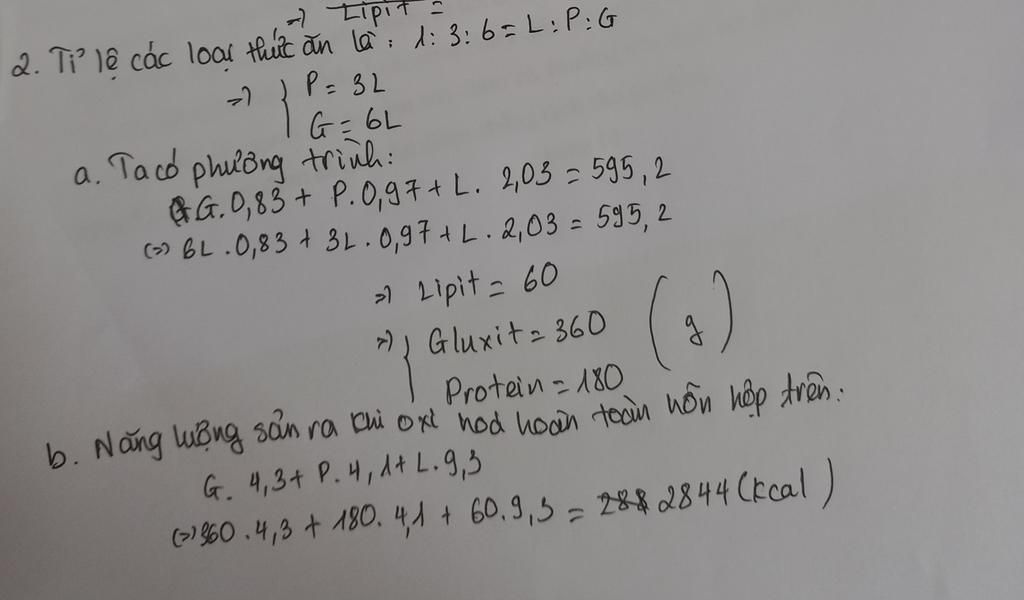 => Lipit =
2. Tỉ lệ các loại thức ăn là: 1: 3: 6 = L: P: G
=> { P = 3L
G = 6L
a. Ta có phương trình:
G. 0,83 + P. 0,97 + L. 2,03 = 595,2
(=) 6L . 0,83 + 3L. 0,97 + L. 2,03 = 595,2
=> Lipit = 60
=> { Gluxit = 360 (g)
Protein = 180
b. Năng lượng sản ra khi oxi hoá hoàn toàn hỗn hợp trên:
G. 4,3 + P. 4,1 + L. 9,3
(=) 360 . 4,3 + 180. 4,1 + 60. 9,3 = 2844 (kcal)